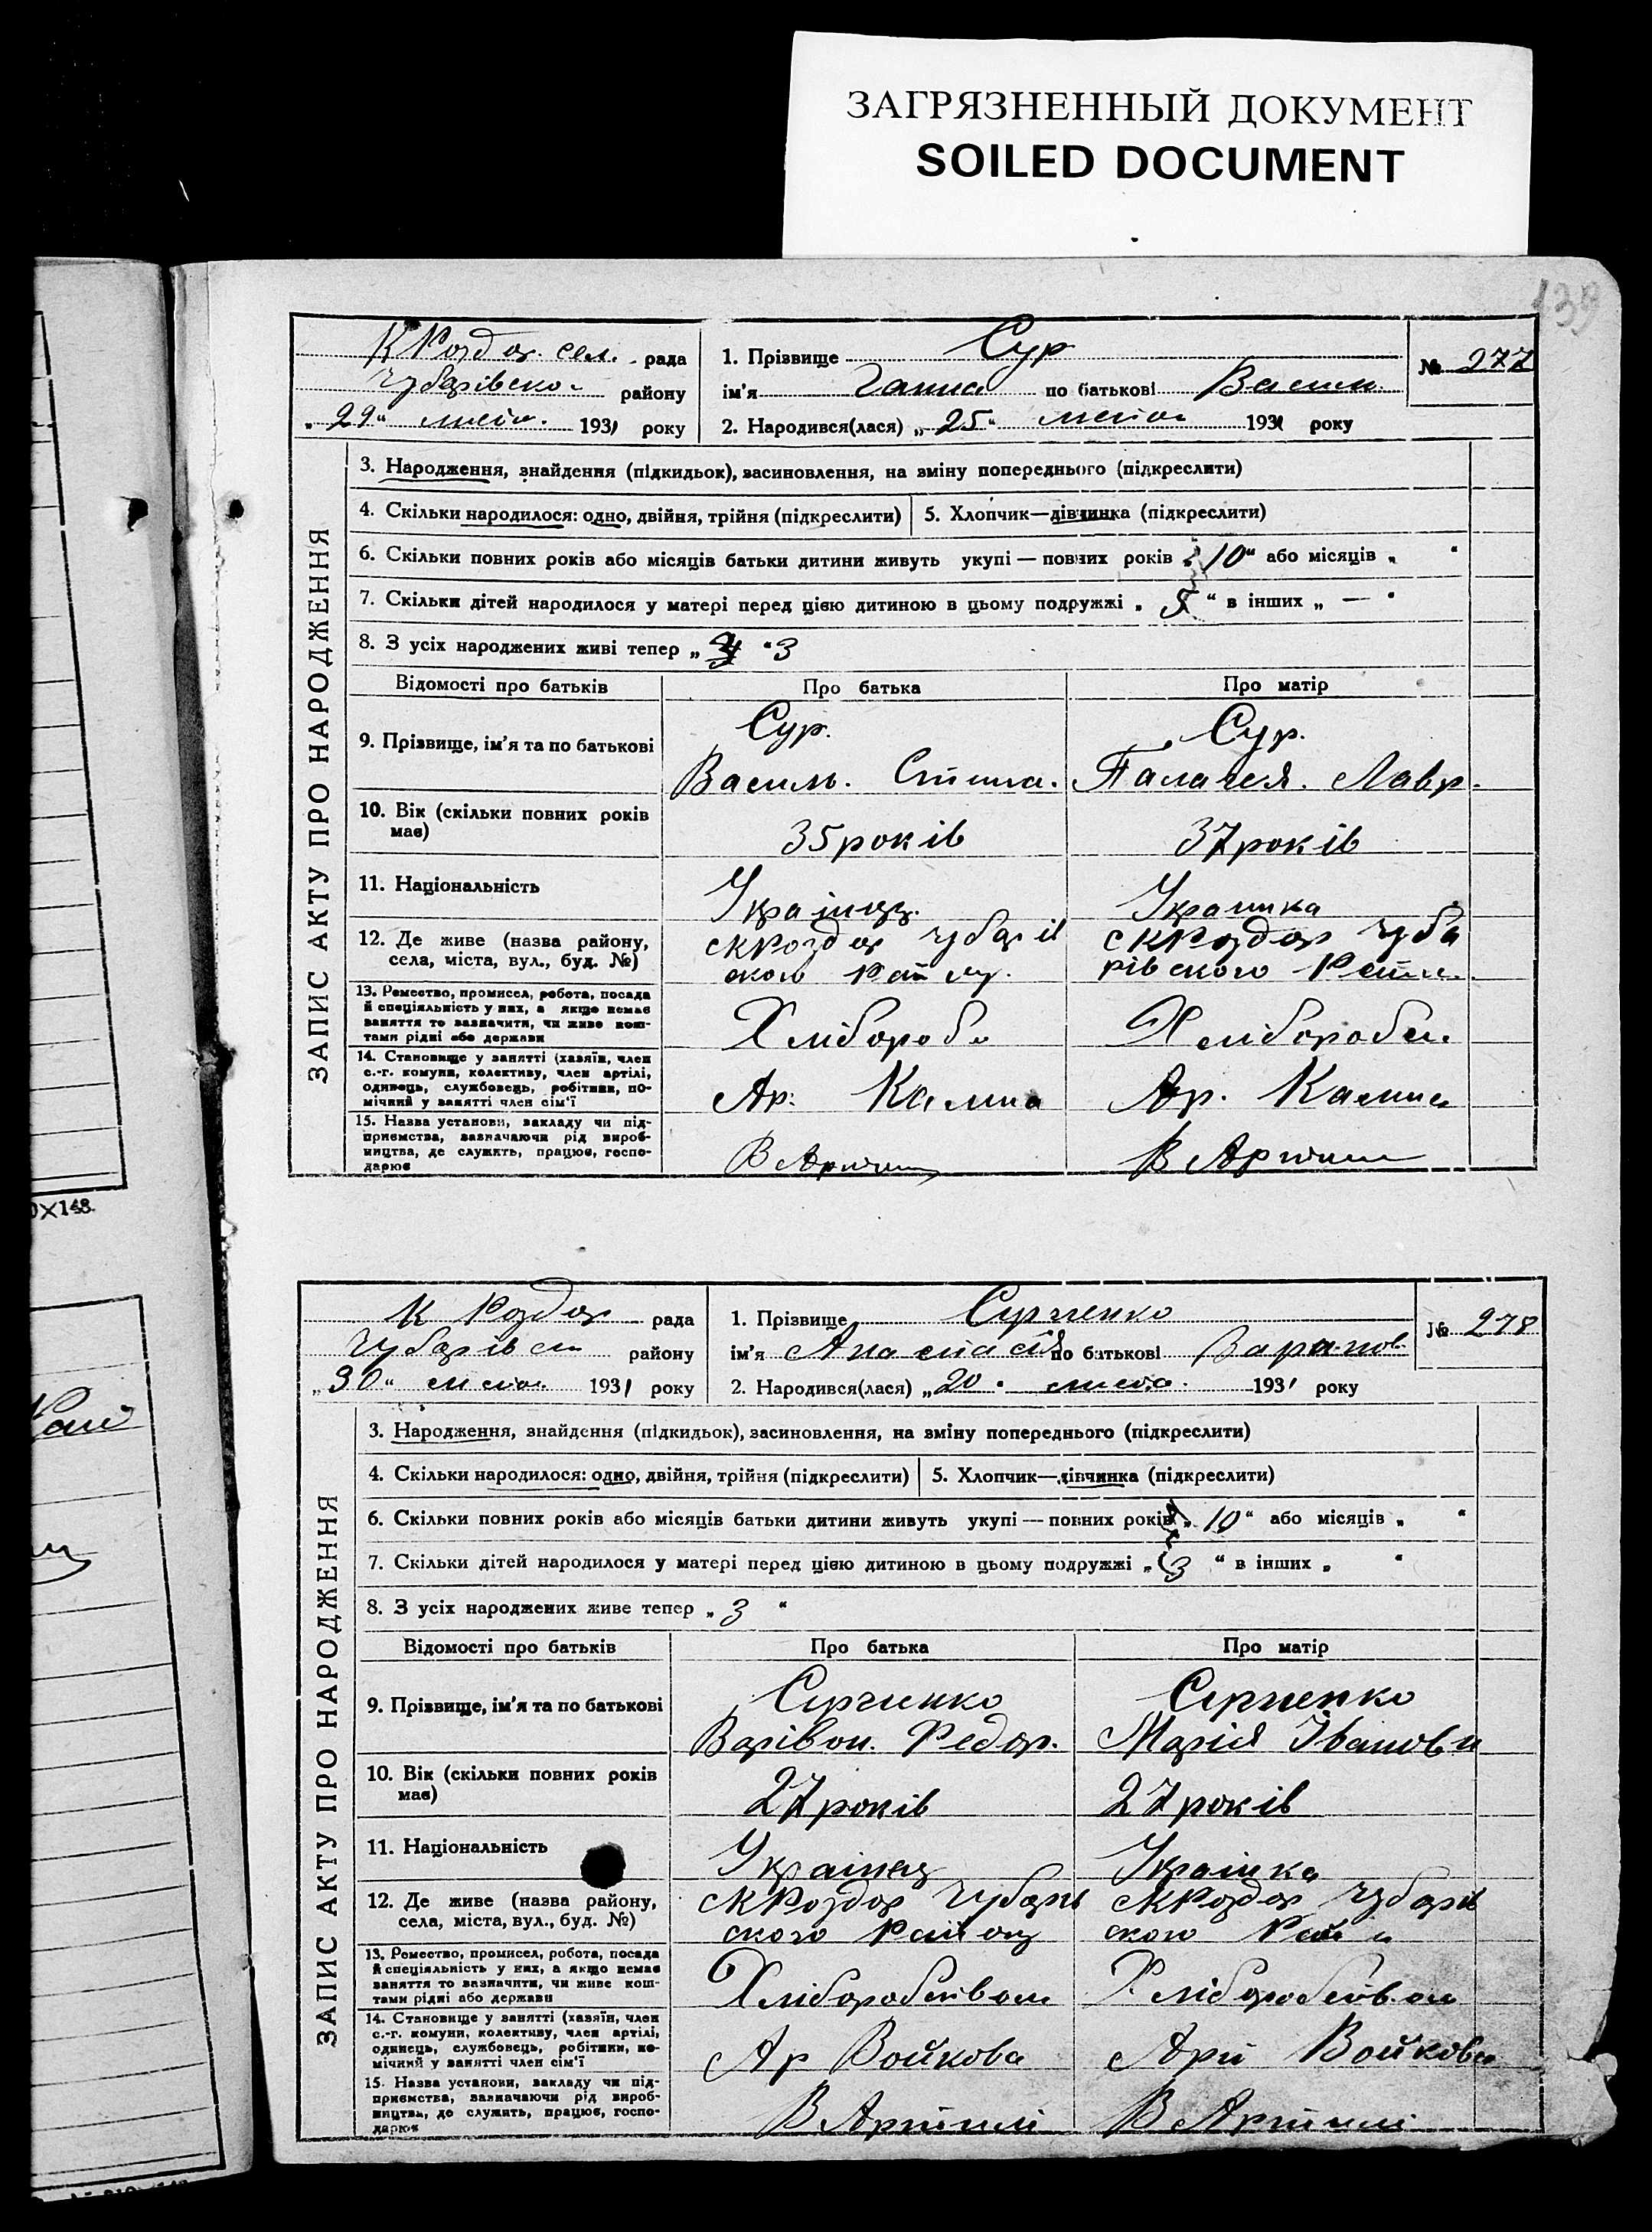 ЗАГРЯЗНЕННЫЙ ДОКУМЕНТ
SOILED DOCUMENT
139
К Роздор. сел. рада
Чубарівсько району
"29" листо. 1931 року
1. Прізвище Сур
ім'я Ганна по батькові Васил.
2. Народився(лася) "25" листоп 1931 року
№ 277
ЗАПИС АКТУ ПРО НАРОДЖЕННЯ
3. Народження, знайдення (підкидьок), засиновлення, на зміну попереднього (підкреслити)
4. Скільки народилося: одно, двійня, трійня (підкреслити)
5. Хлопчик—дівчинка (підкреслити)
6. Скільки повних років або місяців батьки дитини живуть укупі — повних років „10" або місяців „ "
7. Скільки дітей народилося у матері перед цією дитиною в цьому подружжі „5" в інших „ — "
8. З усіх народжених живі тепер „ " 3
Відомості про батьків Про батька Про матір
9. Прізвище, ім'я та по батькові
Сур. Сур.
Василь. Палагея. Лавр.
10. Вік (скільки повних років має)
35 років 37 років
11. Національність
Українець Українка
12. Де живе (назва району, села, міста, вул., буд. №)
с К Роздор Чубарів с К Роздор Чуба
ського рівського
13. Ремество, промисел, робота, посада й спеціяльність у них, а якщо немає заняття то зазначити, чи живе коштами рідні або держави
Хлібороб Хлібороб
14. Становище у занятті (хазяїн, член с.-г. комуни, колективу, член артілі, одинець, службовець, робітник, помічний у занятті член сім'ї
Ар. Ар.
15. Назва установи, закладу чи підприємства, зазначаючи рід виробництва, де служить, працює, господарює
В Артили В Артили
0×148.
К Роздор рада
Чубарівсь району
"30" листоп 1931 року
1. Прізвище Сергієнко
ім'я Анастасія по батькові Варивонов.
2. Народився(лася) "20" листо. 1931 року
№ 278
ЗАПИС АКТУ ПРО НАРОДЖЕННЯ
3. Народження, знайдення (підкидьок), засиновлення, на зміну попереднього (підкреслити)
4. Скільки народилося: одно, двійня, трійня (підкреслити)
5. Хлопчик—дівчинка (підкреслити)
6. Скільки повних років або місяців батьки дитини живуть укупі — повних років „10" або місяців „ "
7. Скільки дітей народилося у матері перед цією дитиною в цьому подружжі „3" в інших „ "
8. З усіх народжених живе тепер „3"
Відомості про батьків Про батька Про матір
9. Прізвище, ім'я та по батькові
Сергієнко Сергієнко
Варівон. Федор. Марія Івановн
10. Вік (скільки повних років має)
27 років 27 років
11. Національність
Українец Українка
12. Де живе (назва району, села, міста, вул., буд. №)
с К Роздор Чубарів с К Роздор Чубарів
ського Району ського
13. Ремество, промисел, робота, посада й спеціяльність у них, а якщо немає заняття то зазначити, чи живе коштами рідні або держави
Хліборобством Хліборобством
14. Становище у занятті (хазяїн, член с.-г. комуни, колективу, член артілі, одинець, службовець, робітник, помічний у занятті член сім'ї
Ар Войкова Арт Войкова
15. Назва установи, закладу чи підприємства, зазначаючи рід виробництва, де служить, працює, господарює
В Артилі В Артилі